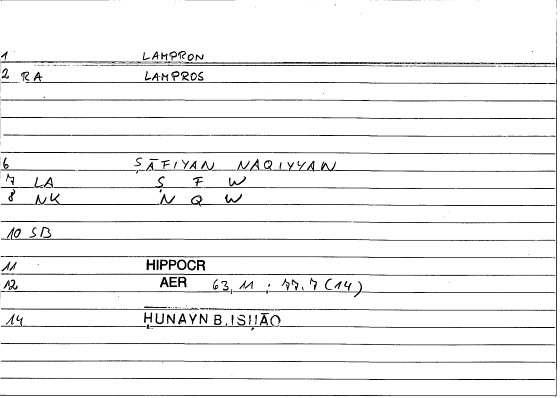 1 LAMPRON
2 RA LAMPROS
6 ṢĀFIYAN NAQIYYAN
7 LA Ṣ F W
8 NK N Q W
10 SB
11 HIPPOCR
12 AER 63, 11 ; 77.7 (14)
14 ḤUNAYN B. ISḤĀQ